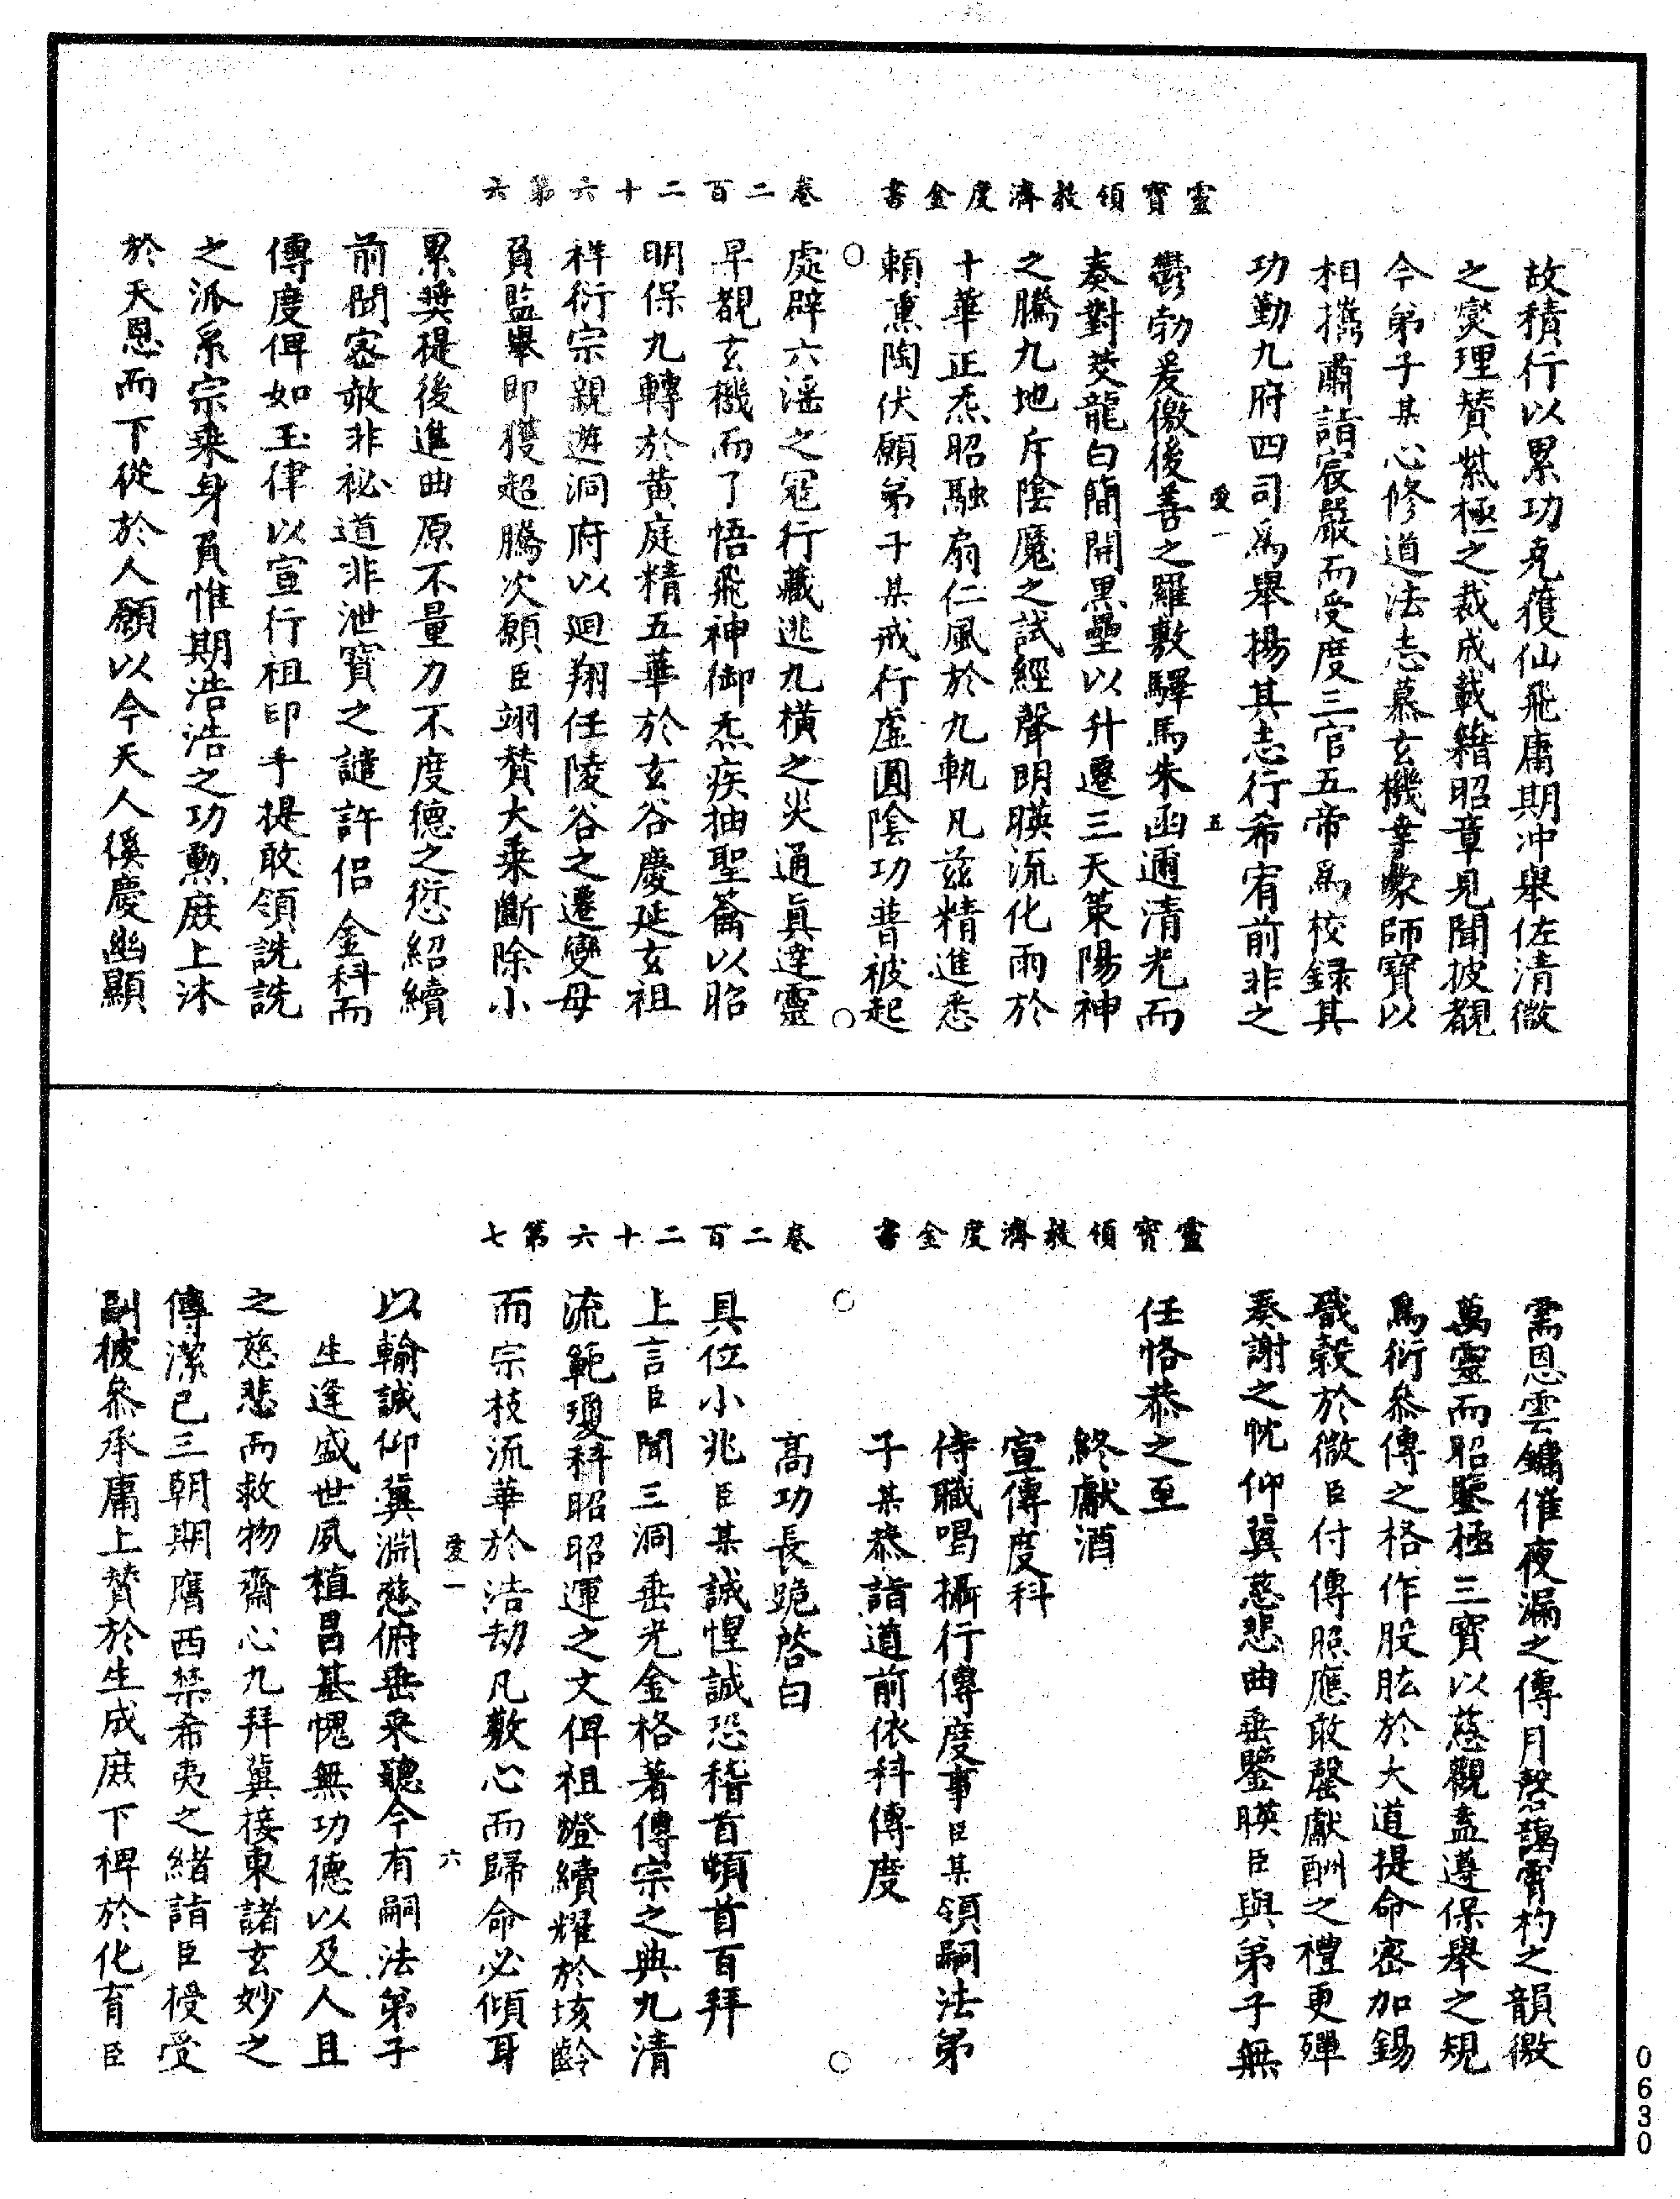 靈寶領教濟度金書　卷二百二十六第六
故積行以累功克獲仙飛庸期冲舉佐清微
之爕理賛紫極之裁成載籍昭章見聞披覩
今弟子某心修道法志慕玄機幸蒙師寶以
相攜肅詣宸嚴而受度三官五帝爲校録其
功勤九府四司爲舉揚其志行希宥前非之
愛一　五
鬱勃爰徼後善之羅敷驛馬朱函邇清光而
奏對茭龍白簡開黒壘以升遷三天策陽神
之騰九地斥陰魔之試經聲朗暎流化雨於
十華正炁昭融扇仁風於九軌凡兹精進悉
頼熏陶伏願弟子某戒行虛圓陰功普被起
處辟六滛之冦行藏逃九橫之灾通眞達靈
早覩玄機而了悟飛神御炁疾抽聖籥以昭
明保九轉於黄庭精五華於玄谷慶延玄祖
祥衍宗親遊洞府以廻翔任陵谷之遷變毋
負監舉即獲超騰次願臣翊賛大乘斷除小
累奬禔後進曲原不量力不度德之愆紹續
前聞密敚非祕道非泄寶之譴許侣金科而
傳度俾如玉律以宣行祖印手提敢領詵詵
之派系宗乘身負惟期浩浩之功勲庻上沐
於天恩而下從於人願以今天人徯慶幽顯
靈寶領教濟度金書　卷二百二十六第七
霑恩雲鏞催夜漏之傳月磬謁霄杓之韻徼
萬靈而昭鑒極三寶以慈觀盍遵保舉之規
爲衍叅傳之格作股肱於大道提命密加錫
戩穀於微臣付傳照應敢罄獻酬之禮更殫
奏謝之忱仰冀慈悲曲垂鑒暎臣與弟子無
任恪恭之至
終獻酒
宣傳度科
侍職喝攝行傳度事臣某領嗣法弟
子某恭詣道前依科傳度
高功長跪啓白
具位小兆臣某誠惶誠恐稽首頓首百拜
上言臣聞三洞垂光金格著傳宗之典九清
流範瓊科昭昭運之文俾祖燈續耀於垓齡
而宗枝流華於浩劫凡敷心而歸命必傾耳
愛一　六
以輸誠仰冀淵慈俯垂釆聽今有嗣法弟子
生逢盛世夙植昌基愧無功德以及人且
之慈悲而救物齋心九拜冀接東諸玄妙之
傳潔已三朝期膺西禁希夷之緒詣臣授受
副彼叅承庸上賛於生成庻下裨於化育臣
0630